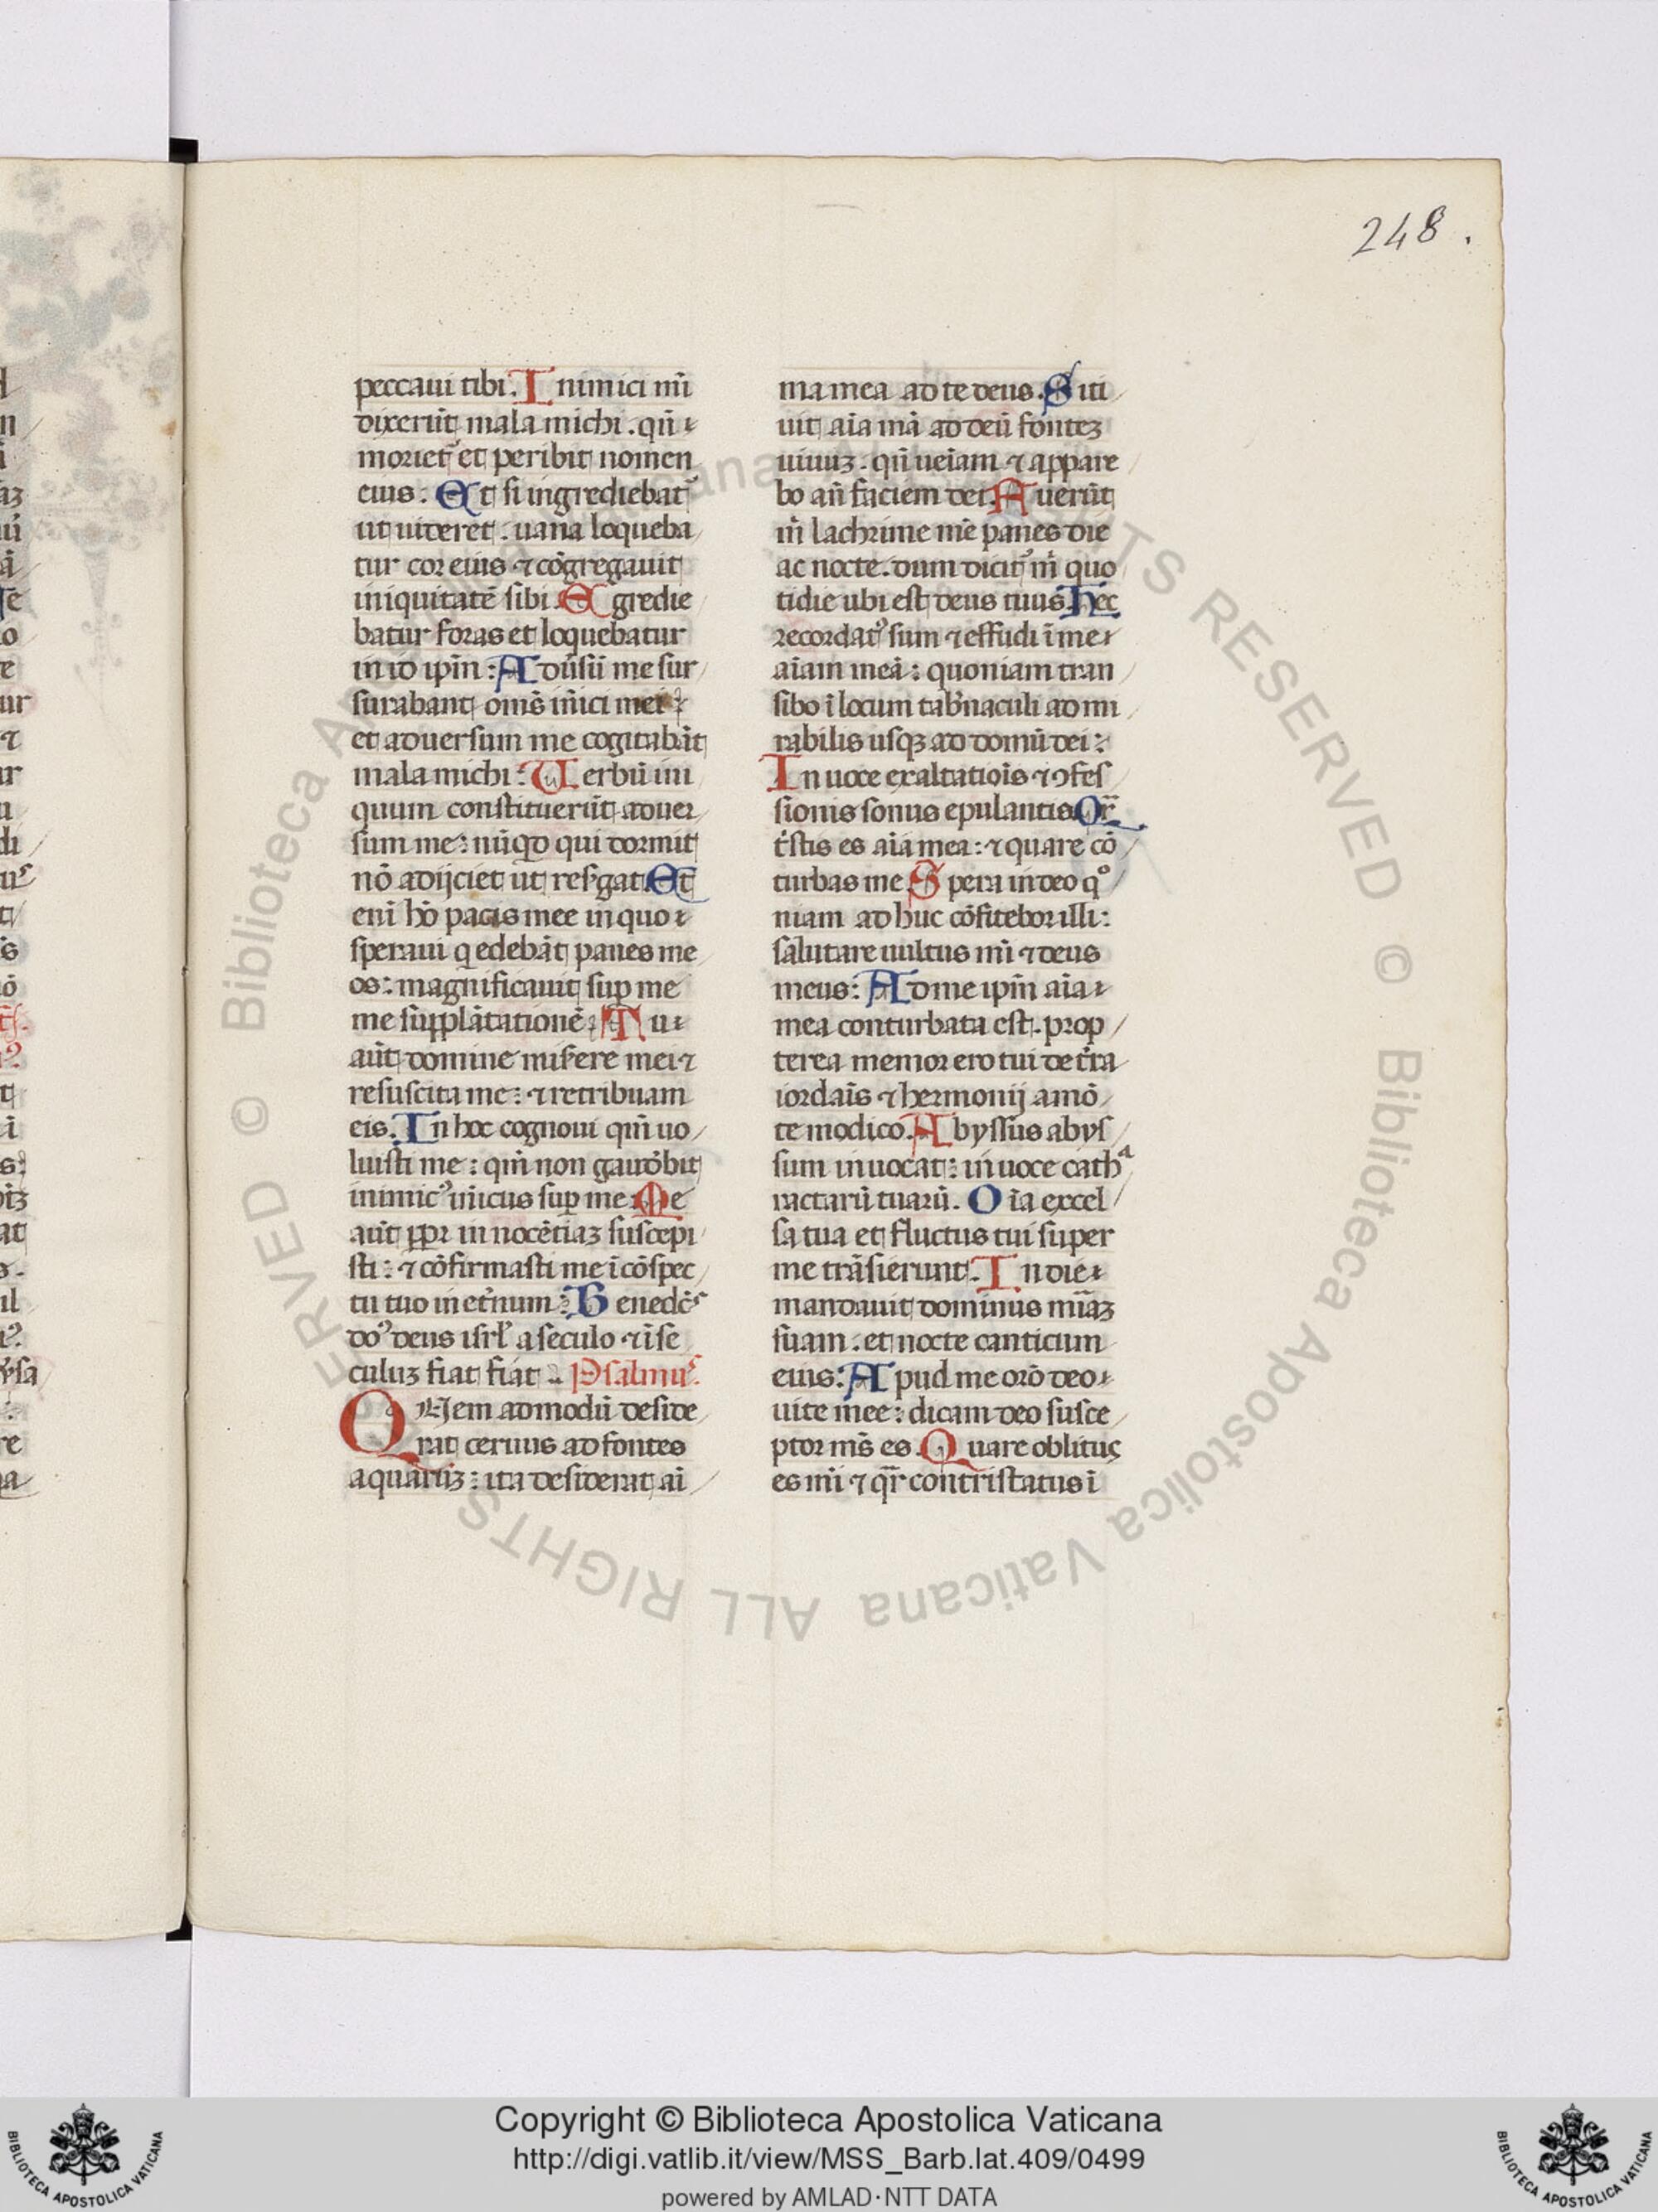 248.
peccaui tibi. Inimici mī
dixerūt mala michi. qn̄
moriet᷑ et peribit nomen
eius: Et si ingrediebat᷑
ut uideret: uana loqueba
tur cor eius ⁊ cōgregauit
iniquitatē sibi. Egredie
batur foras et loquebatur
in id ip̄m: Aduʼsū me sur
surabant om̄s inīci mei
et aduersum me cogitabāt
mala michi: Uerbū ini
quum constituerūt aduer
sum me: nūqd qui dormit
nō adijciet ut resʼgat. Et
enī hō pacis mee in quo
speraui q edebāt panes me
os: magnificauit suꝑ me
me supplātationē: Tu
aūt domine misʼere mei ⁊
resuscita me: ⁊ retribuam
eis. In hoc cognoui qm̄ uo
luisti me: qm̄ non gaudʼbit
inimicꝰ inīcus suꝑ me: Me
aūt ꝓpr innocētiaꝫ suscepi
sti: ⁊ cōfirmasti me ī cōspec
tu tuo in etʼnum: Benedc̄s
dōꝰ deus isrl̄ a seculo ⁊ ī se
culuꝫ fiat fiat Psalmus.
QUem admodū deside
rat ceruus ad fontes
aquaruꝫ: ita desiderat ai
ma mea ad te deus. Siti
uit aīa mā ad deū fontez
uiuuꝫ. qn̄ ueīam ⁊ appare
bo an̄ faciem dei. Fuerūt
m̄ lachrime mē panes die
ac nocte. dum dicit᷑ m̄ quo
tidie ubi est deus tuus. Hec
recordatꝰ sum ⁊ effudi ī me
aīam meā: quoniam tran
sibo ī locum tabʼnaculi admi
rabilis usqꝫ ad domū dei:
In uoce exaltatiōis ⁊ ꝯfes
sionis sonus epulantis. Qr̄
tʼstis es aīa mea: ⁊ quare cō
turbas me. Spera in deo qº
niam ad huc cōfitebor illi:
salutare uultus mī ⁊ deus
meus: Ad me ip̄m aīa
mea conturbata est. prop
terea memor ero tui de tʼra
iordaīs ⁊ hermonij a mō
te modico. Abyssus abys
sum inuocat: in uoce cathᵃ
ractarū tuarū. Oīa excel
sa tua et fluctus tui super
me trāsierunt. In die
mandauit dominus mīaꝫ
suam: et nocte canticum
eius: Apud me orō deo
uite mee: dicam deo susce
ptor ms̄ es. Quare oblitus
es mī ⁊ qr̄ contristatus ī
© Biblioteca Apostolica Vaticana ALL RIGHTS RESERVED © Biblioteca Apostolica Vaticana ALL RIGHTS RESERVED
Copyright © Biblioteca Apostolica Vaticana
http://digi.vatlib.it/view/MSS_Barb.lat.409/0499
powered by AMLAD·NTT DATA
BIBLIOTECA APOSTOLICA VATICANA
BIBLIOTECA APOSTOLICA VATICANA